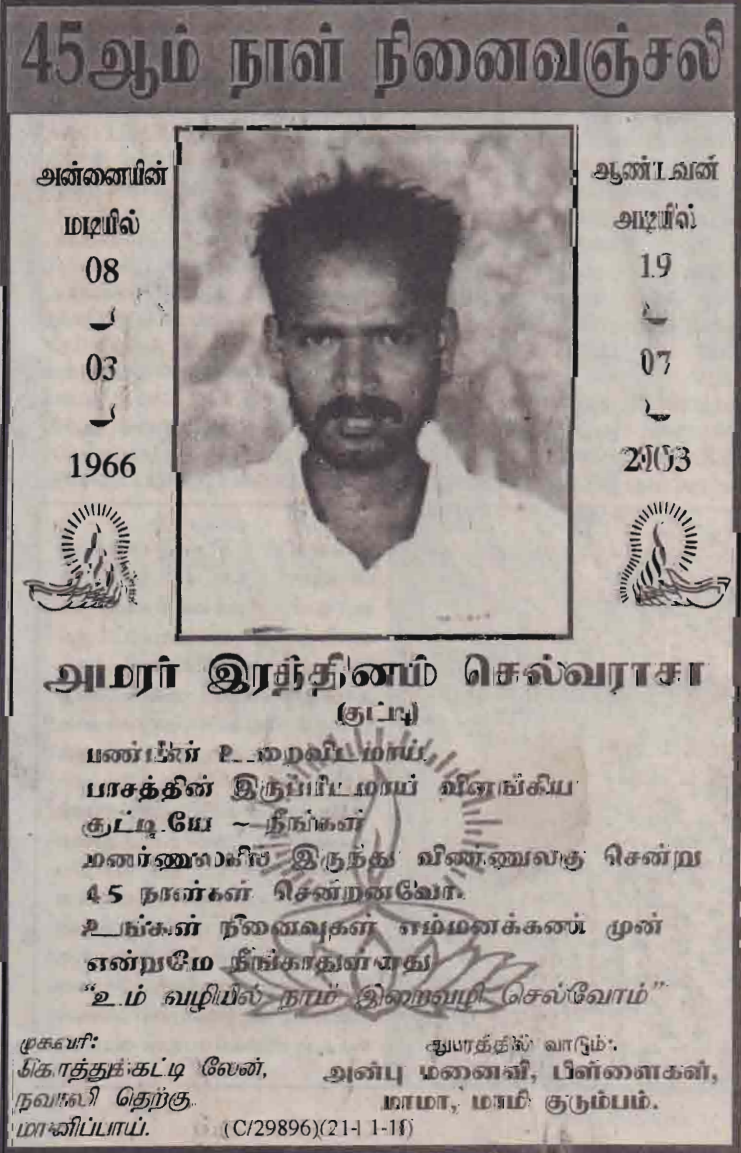 45ஆம் நாள் நினைவஞ்சலி
அன்னையின்
மடியில்
08
03
1966
ஆண்டவன்
அடியில்
19
07
2003
அமரர் இரத்தினம் செல்வராசா
(குட்டி)
பண்பின் உறைவிடமாய்
பாசத்தின் இருப்பிடமாய் விளங்கிய
குட்டியே - நீங்கள்
மண்ணுலகில் இருந்து விண்ணுலகு சென்று
45 நாள்கள் சென்றனவோ
உங்கள் நினைவுகள் எம்மனக்கண் முன்
என்றுமே நீங்காதுள்ளது
"உம் வழியில் நாம் இறைவழி செல்வோம்"
முகவரி:
கொத்துக்கட்டி லேன்,
நவாலி தெற்கு
மானிப்பாய்.
துயரத்தில் வாடும்:
அன்பு மனைவி, பிள்ளைகள்,
மாமா, மாமி குடும்பம்.
(C/29896)